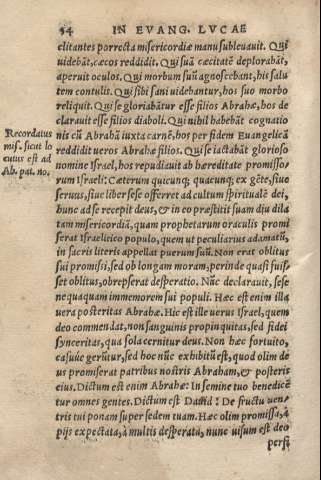 54 IN EVANG. LVCAE
clitantes porrecta misericordiæ manu subleuauit. Qui
uidebāt, cæcos reddidit. Qui suā cæcitatē deplorabāt,
aperuit oculos. Qui morbum suū agnoscebant, his salu
tem contulit. Qui sibi sani uidebantur, hos suo morbo
reliquit. Qui se gloriabātur esse filios Abrahæ, hos de
clarauit esse filios diaboli. Qui nihil habebāt cognatio
nis cū Abrahā iuxta carnē, hos per fidem Euangelicā
reddidit ueros Abrahæ filios. Qui se iactabāt glorioso
nomine Israel, hos repudiauit ab hæreditate promisso
rum Israeli: Cæterum quicunq; quacunq; ex gēte, siue
seruus, siue liber sese offerret ad cultum spiritualē dei,
hunc ad se recepit deus, & in eo præstitit suam diu dila
tam misericordiā, quam prophetarum oraculis promi
serat Israelitico populo, quem ut peculiarius adamatū,
in sacris literis appellat puerum suū. Non erat oblitus
sui promissi, sed ob longam moram, perinde quasi fuis,
set oblitus, obrepserat desperatio. Nūc declarauit, sese
nequaquam immemorem sui populi. Hæc est enim illa
uera posteritas Abrahæ. Hic est ille uerus Israel, quem
deo commendat, non sanguinis propinquitas, sed fidei
synceritas, qua sola cernitur deus. Non hæc fortuito,
casúue gerūtur, sed hoc nūc exhibitū est, quod olim de
us promiserat patribus nostris Abraham, & posteris
eius. Dictum est enim Abrahæ: In semine tuo benedicē
tur omnes gentes. Dictum est Dauid: De fructu uen-
tris tui ponam super sedem tuam. Hæc olim promissa, à
pijs expectata, à multis desperatū, nunc uisum est deo
persi
Recordatus
mis. sicut lo
cutus est ad
Ab. pat. no.